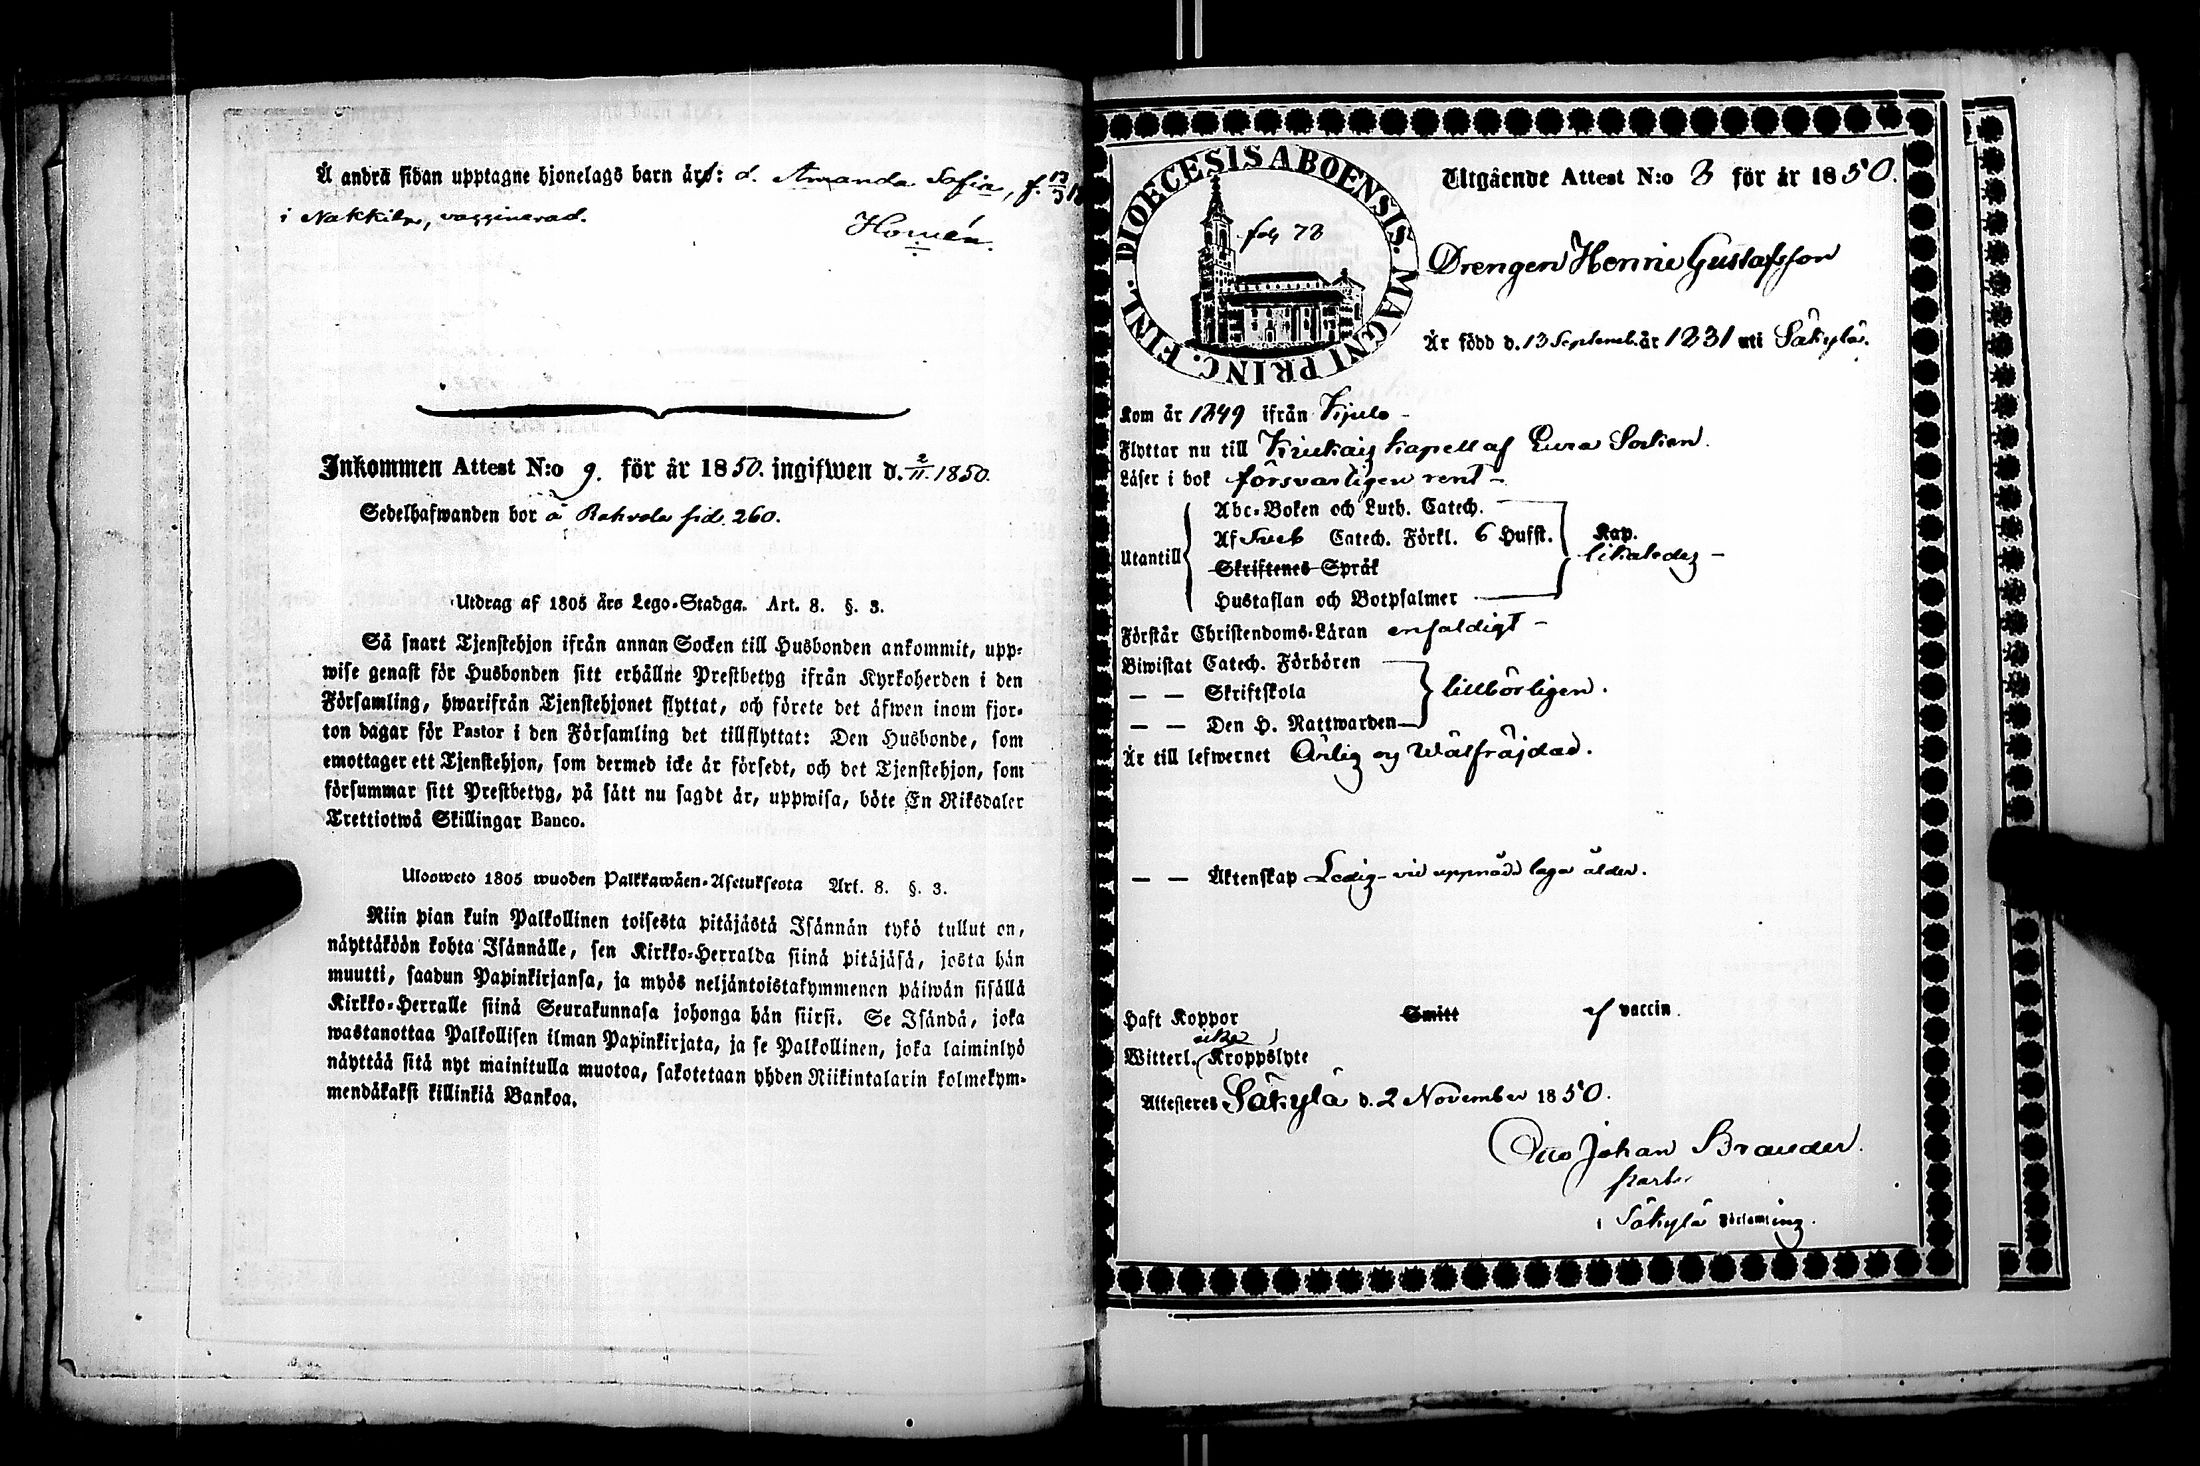 Å andra sidan upptagne hjonelags barn är: d. Amanda Sofia, f. 12/3 18
i Nakkila, vaccinerad.
Homén.
Inkommen Attest N:o 9. för år 1850. ingifwen d. 2/11. 1850.
Sedelhafwanden bor å Rahvola sid. 260.
Utdrag af 1805 års Lego-Stadga. Art. 8. §. 3.
Så snart Tjenstehjon ifrån annan Socken till Husbonden ankommit, upp-
wise genast för Husbonden sitt erhållne Prestbetyg ifrån Kyrkoherden i den
Församling, hwarifrån Tjenstehjonet flyttat, och förete det äfwen inom fjor-
ton dagar för Pastor i den Församling det tillflyttat: Den Husbonde, som
emottager ett Tjenstehjon, som dermed icke är försedt, och det Tjenstehjon, som
försummar sitt Prestbetyg, på sätt nu sagdt är, uppwisa, böte En Riksdaler
Trettiotwå Skillingar Banco.
Ulosweto 1805 wuoden Palkkawäen-Asetuksesta Art. 8. §. 3.
Niin pian kuin Palkollinen toisesta pitäjästä Isännän tykö tullut on,
näyttäköön kohta Isännälle, sen Kirkko-Herralda siinä pitäjäsä, josta hän
muutti, saadun Papinkirjansa, ja myös neljäntoistakymmenen päiwän sisällä
Kirkko-Herralle siinä Seurakunnasa johonga hän siirsi. Se Isändä, joka
wastanottaa Palkollisen ilman Papinkirjata, ja se Palkollinen, joka laiminlyö
näyttää sitä nyt mainitulla muotoa, sakotetaan yhden Riikintalarin kolmekym-
mendäkaksi killinkiä Bankoa.
DIOECESIS ABOENSIS. MAGNI PRINC. FINL.
fol 78
Utgående Attest N:o 8 för år 1850.
Drengen Henric Gustafsson
Är född d. 13 Septemb. år 1831 uti Säkylä.
Kom år 1849 ifrån Kjulo –
Flyttar nu till Kiukais kapell af Eura Socken.
Läser i bok försvarligen rent –
Abc-Boken och Luth. Catech.
Utantill Af Sveb Catech. Förkl. 6 Hufst. Kap. likaledes –
Skriftenes Språk
Hustaflan och Botpsalmer
Förstår Christendoms-Läran enfaldigt –
Biwistat Catech. Förhören
— — Skriftskola tillbörligen.
— — Den H. Nattwarden
Är till lefwernet Ärlig och Wälfräjdad.
— — Äktenskap Ledig – vid uppnådd laga ålder.
Haft Koppor Smitt af vaccin.
icke
Witterl. Kroppslyte
Attesteres Säkylä d. 2 November 1850.
Otto Johan Brander.
i Säkylä Församling.